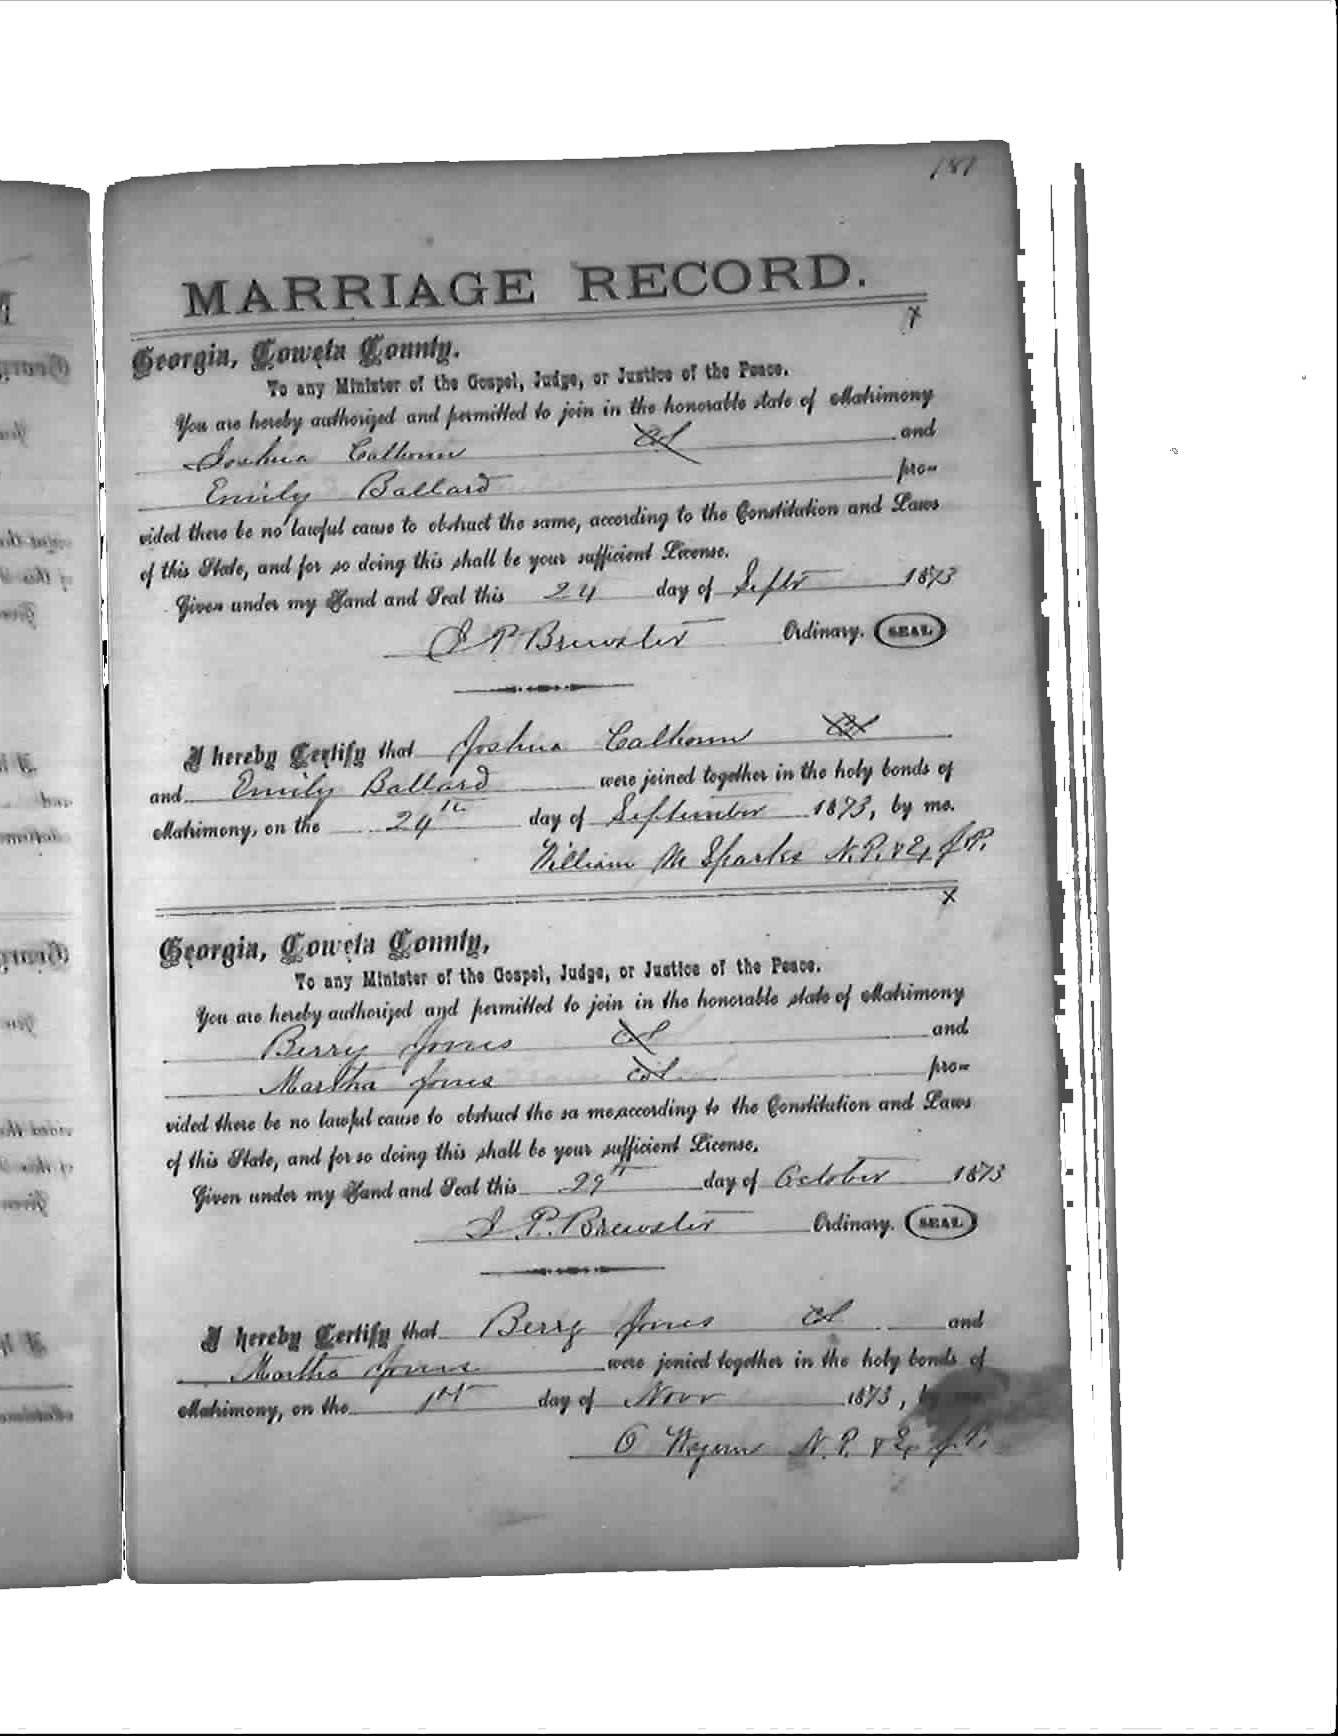 181
MARRIAGE RECORD.
x
Georgia, Coweta County.
To any Minister of the Gospel, Judge, or Justice of the Peace.
You are hereby authorized and permitted to join in the honorable state of Matrimony
Joshua Calhoun Col and
Emily Ballard pro-
vided there be no lawful cause to obstruct the same, according to the Constitution and Laws
of this State, and for so doing this shall be your sufficient License.
Given under my Hand and Seal this 24 day of Septr 1873
J P Brewster Ordinary. SEAL
I hereby Certify that Joshua Calhoun Col
and Emily Ballard were joined together in the holy bonds of
Matrimony, on the 24th day of September 1873, by me.
William M Sparks N.P. & Ex J.P.
x
Georgia, Coweta County,
To any Minister of the Gospel, Judge, or Justice of the Peace.
You are hereby authorized and permitted to join in the honorable state of Matrimony
Berry Jones Col and
Martha Jones Col pro-
vided there be no lawful cause to obstruct the sa me, according to the Constitution and Laws
of this State, and for so doing this shall be your sufficient License.
Given under my Hand and Seal this 29th day of October 1873
J. P. Brewster Ordinary. SEAL
I hereby Certify that Berry Jones Col and
Martha Jones were jonied together in the holy bonds of
Matrimony, on the 1st day of Novr 1873, by me.
N.P. & Ex J.P.